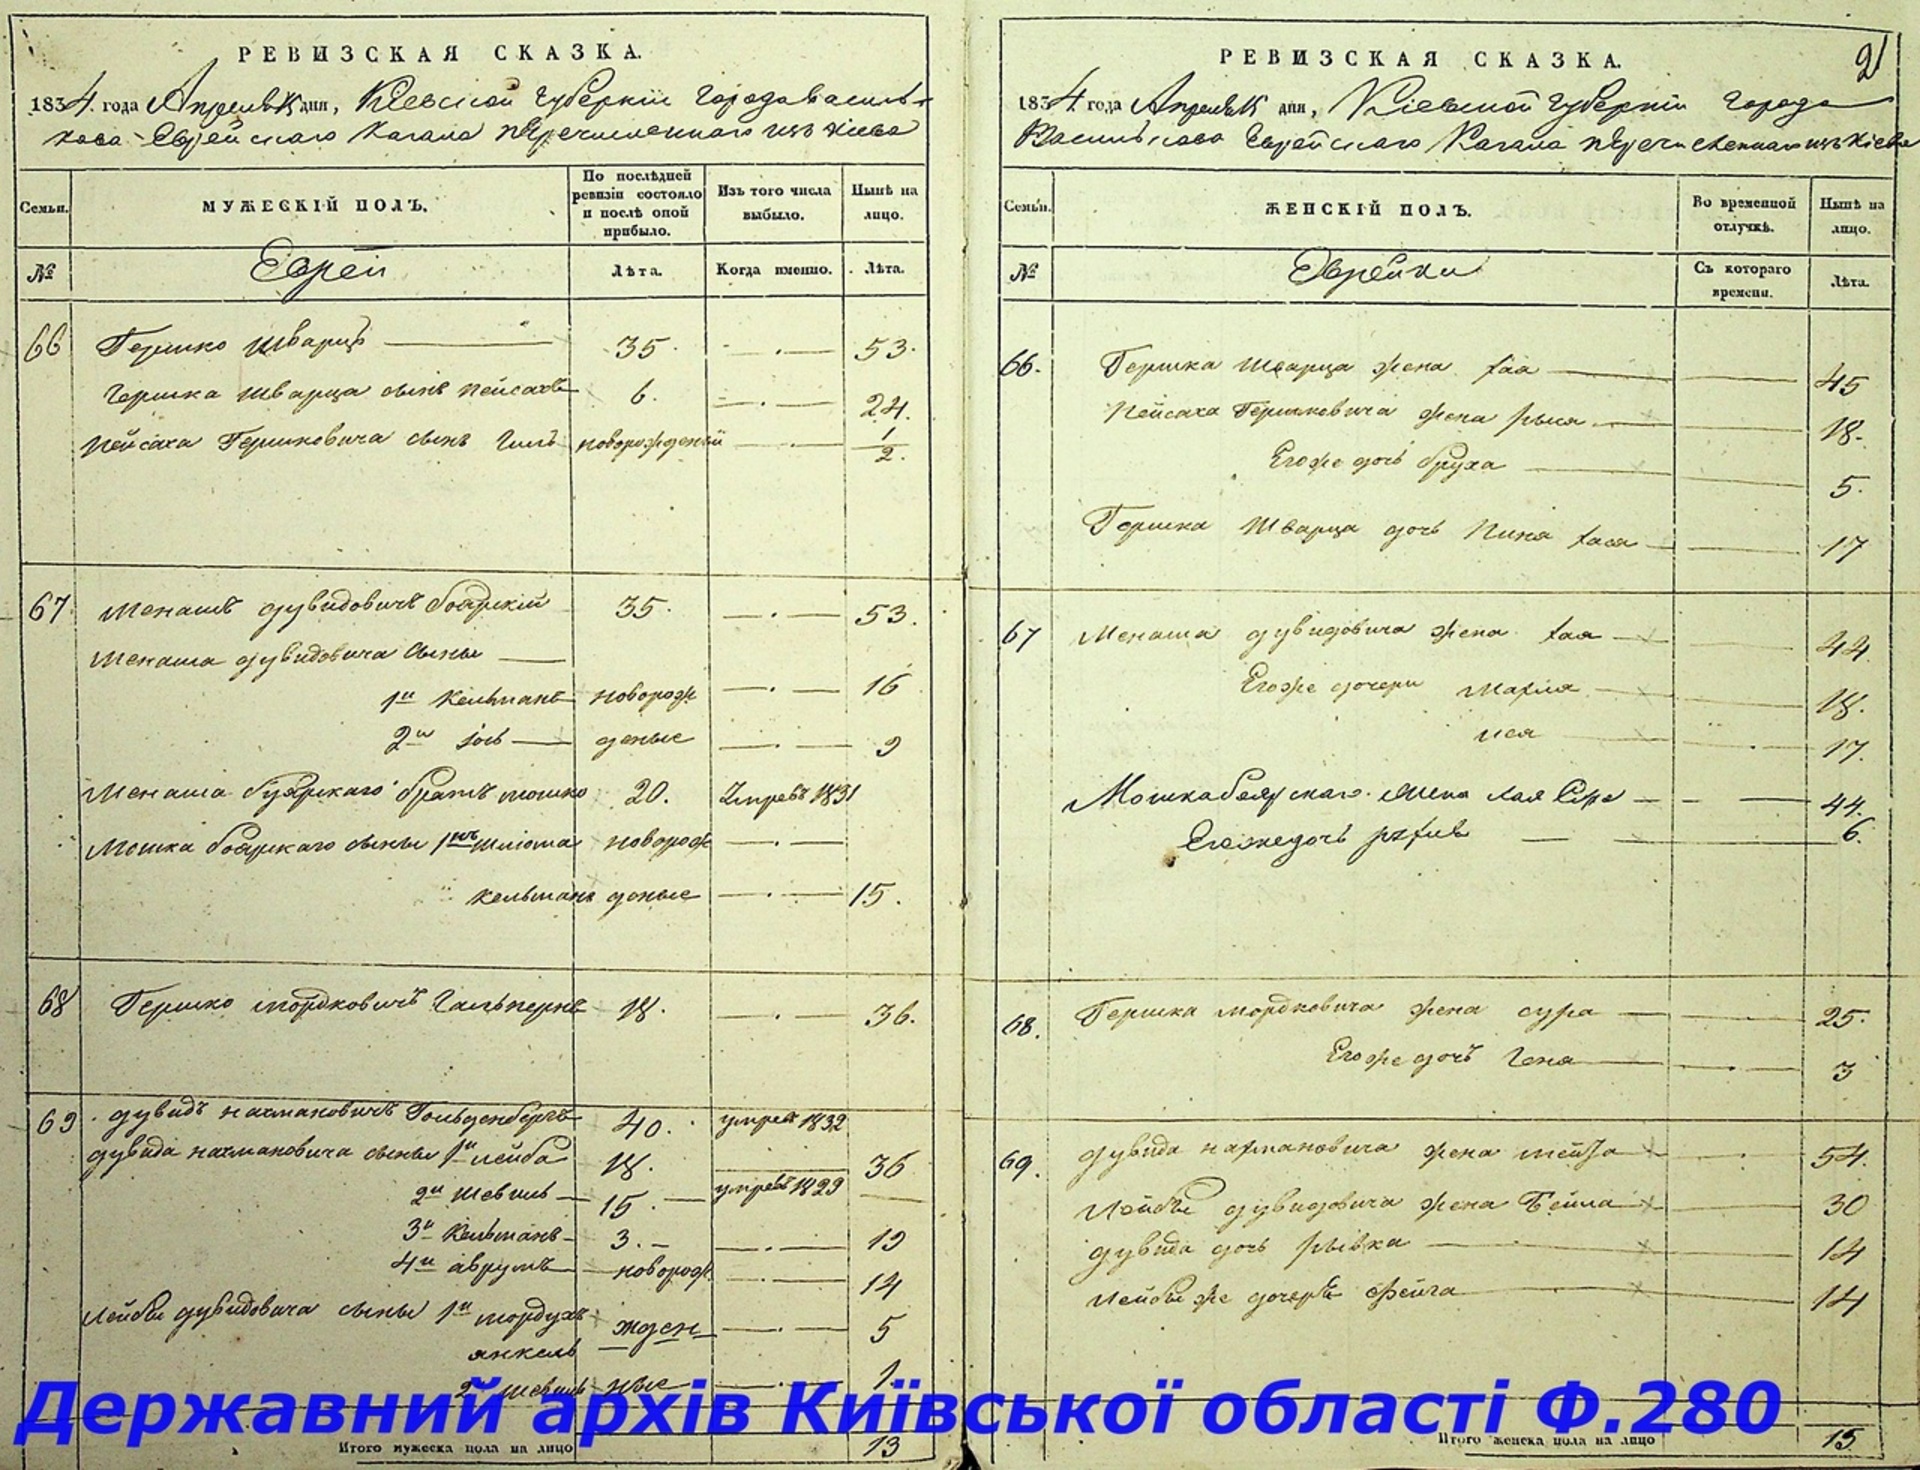 РЕВИЗСКАЯ СКАЗКА.
1834. года Апреля 15 дня, Киевской Губернiи Города Василь-
кова Еврейскаго Кагала перечисленнаго изъ Кiева
Семьи.
МУЖЕСКIЙ ПОЛЪ.
По послѣдней ревизiи состояло и послѣ оной прибыло.
Изъ того числа выбыло.
Нынѣ на лицо.
№
Еврей
Лѣта.
Когда именно.
Лѣта.
66 Гершко Шварцъ 35. 53.
Гершка Шварца сынъ Пейсахъ 6. 24.
Пейсаха Гершковича сынъ новорожденый 1/2.
67 Менашъ Дувидовичъ Боярскiй 35. 53.
Менаша Дувидовича сыны
1й Кельманъ новорож 16
2й Iось деные 9
Менаша Боярскаго братъ Мошко 20. Умревъ 1831
Мошка Боярскаго сыны 1й Шлiома новорож
Кельманъ деные 15.
68 Гершко Мордковичъ Гальпернъ 18. 36.
69 Дувидъ Нахмановичъ Гольденбергъ 40. умревъ 1832
Дувида Нахмановича сыны 1й Лейба 18. 36
2й Шевель 15. умревъ 1829
3й Кельманъ 3. 19
4й Аврумъ новорож 14
Лейбы Дувидовича сыны 1й Мордухъ жден 5
Янкель
2 Шевель ные 1
Итого мужеска пола на лицо 13
2
РЕВИЗСКАЯ СКАЗКА.
1834 года Апреля 15 дня, Кiевской Губернiи Города
Василькова Еврейскаго Кагала перечисленнаго изъ Кiева
Семьи.
ЖЕНСКIЙ ПОЛЪ.
Во временной отлучкѣ.
Нынѣ на лицо.
№
Еврейки
Съ котораго времени.
Лѣта.
66. Гершка Шварца жена Хая 45
Пейсаха Гершковича жена Рыся 18.
Егоже дочь Бруха 5.
Гершка Шварца дочь Хася 17
67 Менаша Дувидовича жена Хая 44
Егоже дочери Махля 18.
17.
Мошка Боярскаго жена 44.
Егоже дочь 6.
68. Гершка Мордковича жена Сура 25.
Егоже дочь Геня 3
69. Дувида Нахмановича жена 54.
Лейбы Дувидовича жена Бейла 30
Дувида дочь Рывка 14
Лейбы же дочерь Фейга 14
Итого женска пола на лицо 15
Державний архів Київської області Ф.280